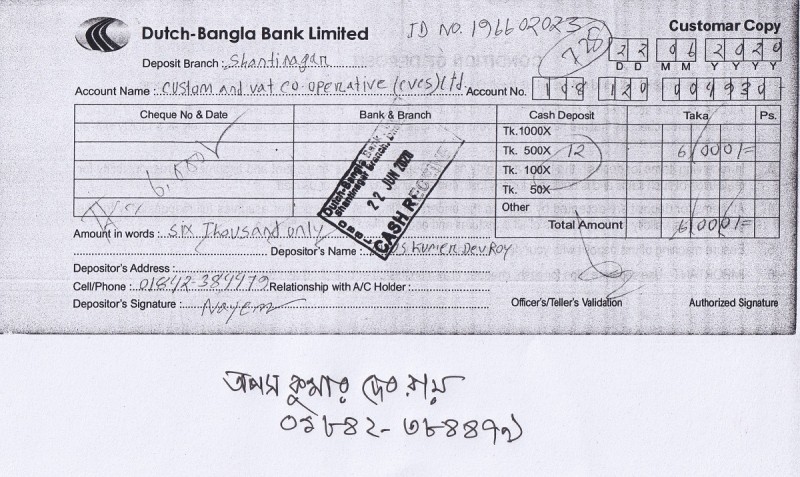 Dutch-Bangla Bank Limited
JD NO. 196602023
Customar Copy
Deposit Branch : Shantinagar
22 06 2020
D D M M Y Y Y Y
Account Name : Custom and vat co-operative (cvcs) Ltd. Account No. 108 120 004930
Cheque No & Date Bank & Branch Cash Deposit Taka Ps.
Tk. 1000X
Tk. 500X 12 6,000/=
Tk. 100X
Tk. 50X
Other
Total Amount 6,000/=
6,000/
Dutch-Bangla Bank
Shantinagar Branch,
22 JUN 2020
DBBL
CASH RECEIVE
Amount in words : SIX Thousand only
Depositor's Name : Kumer Dev Roy
Depositor's Address :
Cell/Phone : Relationship with A/C Holder :
Depositor's Signature : Nayem
Officer's/Teller's Validation Authorized Signature
কুমার দেব রায়